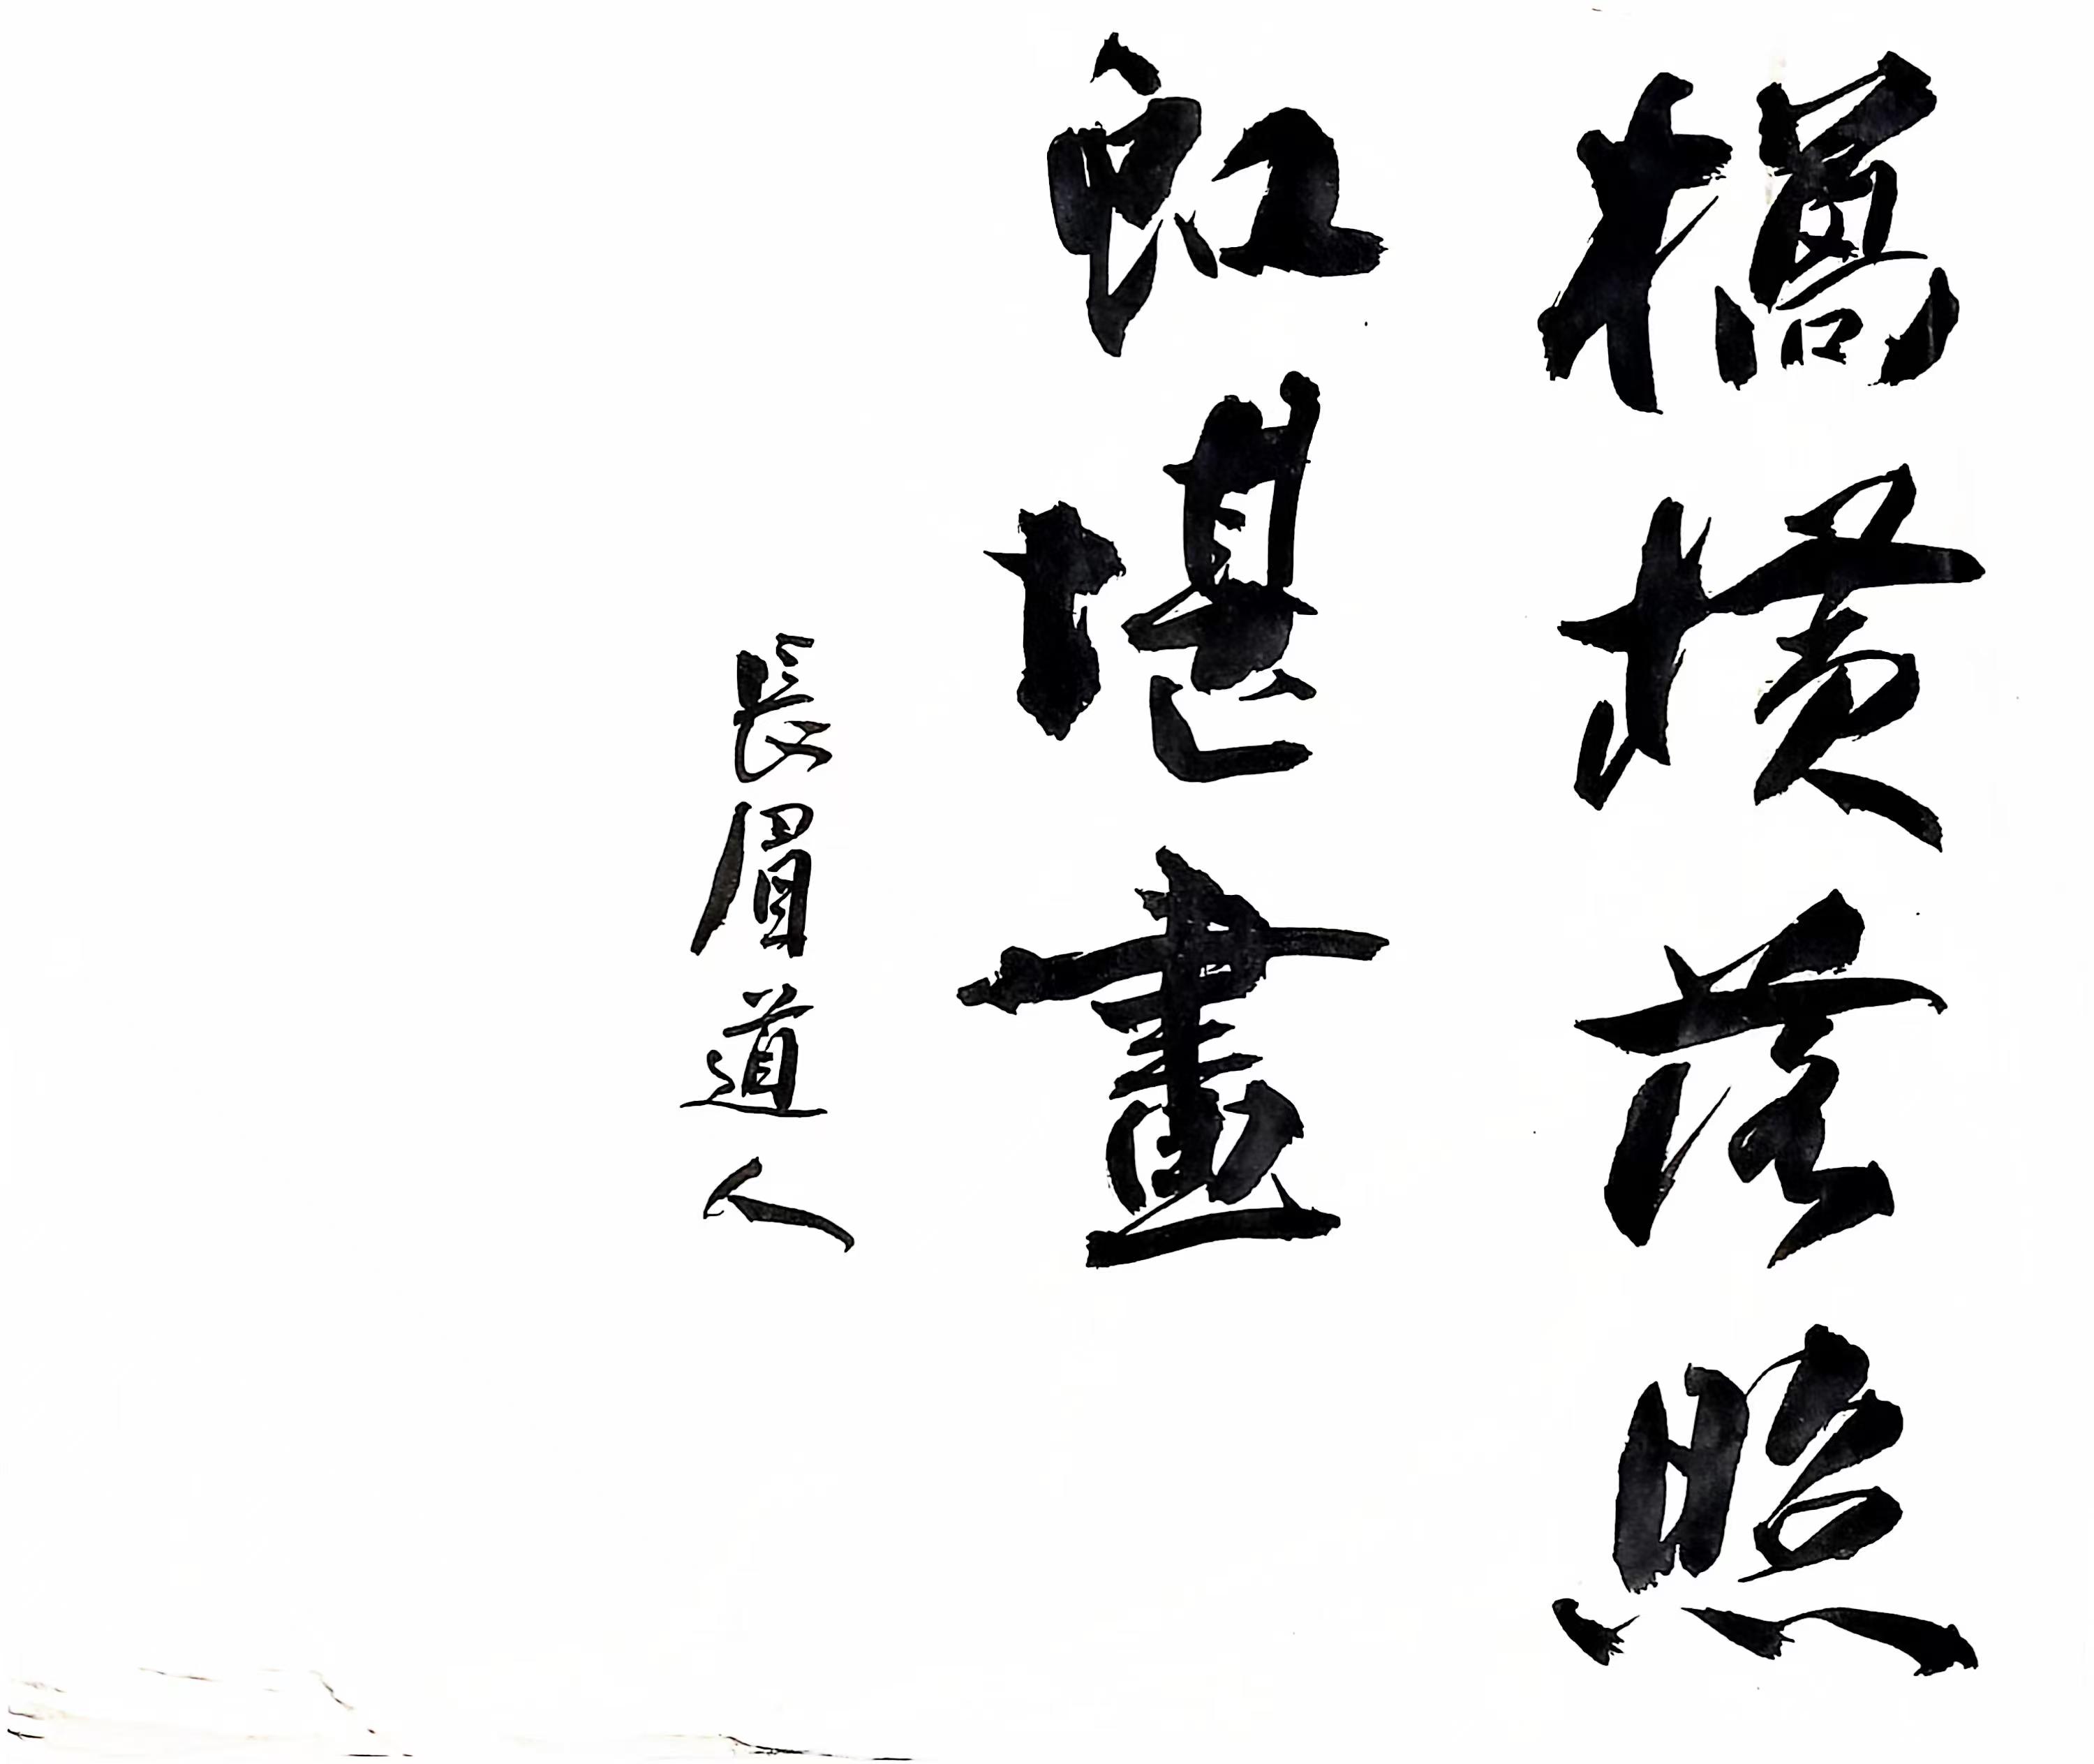 橋橫落照
虹堪畫
長眉道人